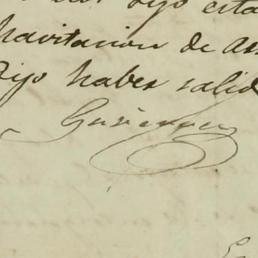 dijo esta
havitacion de
Dijo haber salid
Gutierrez